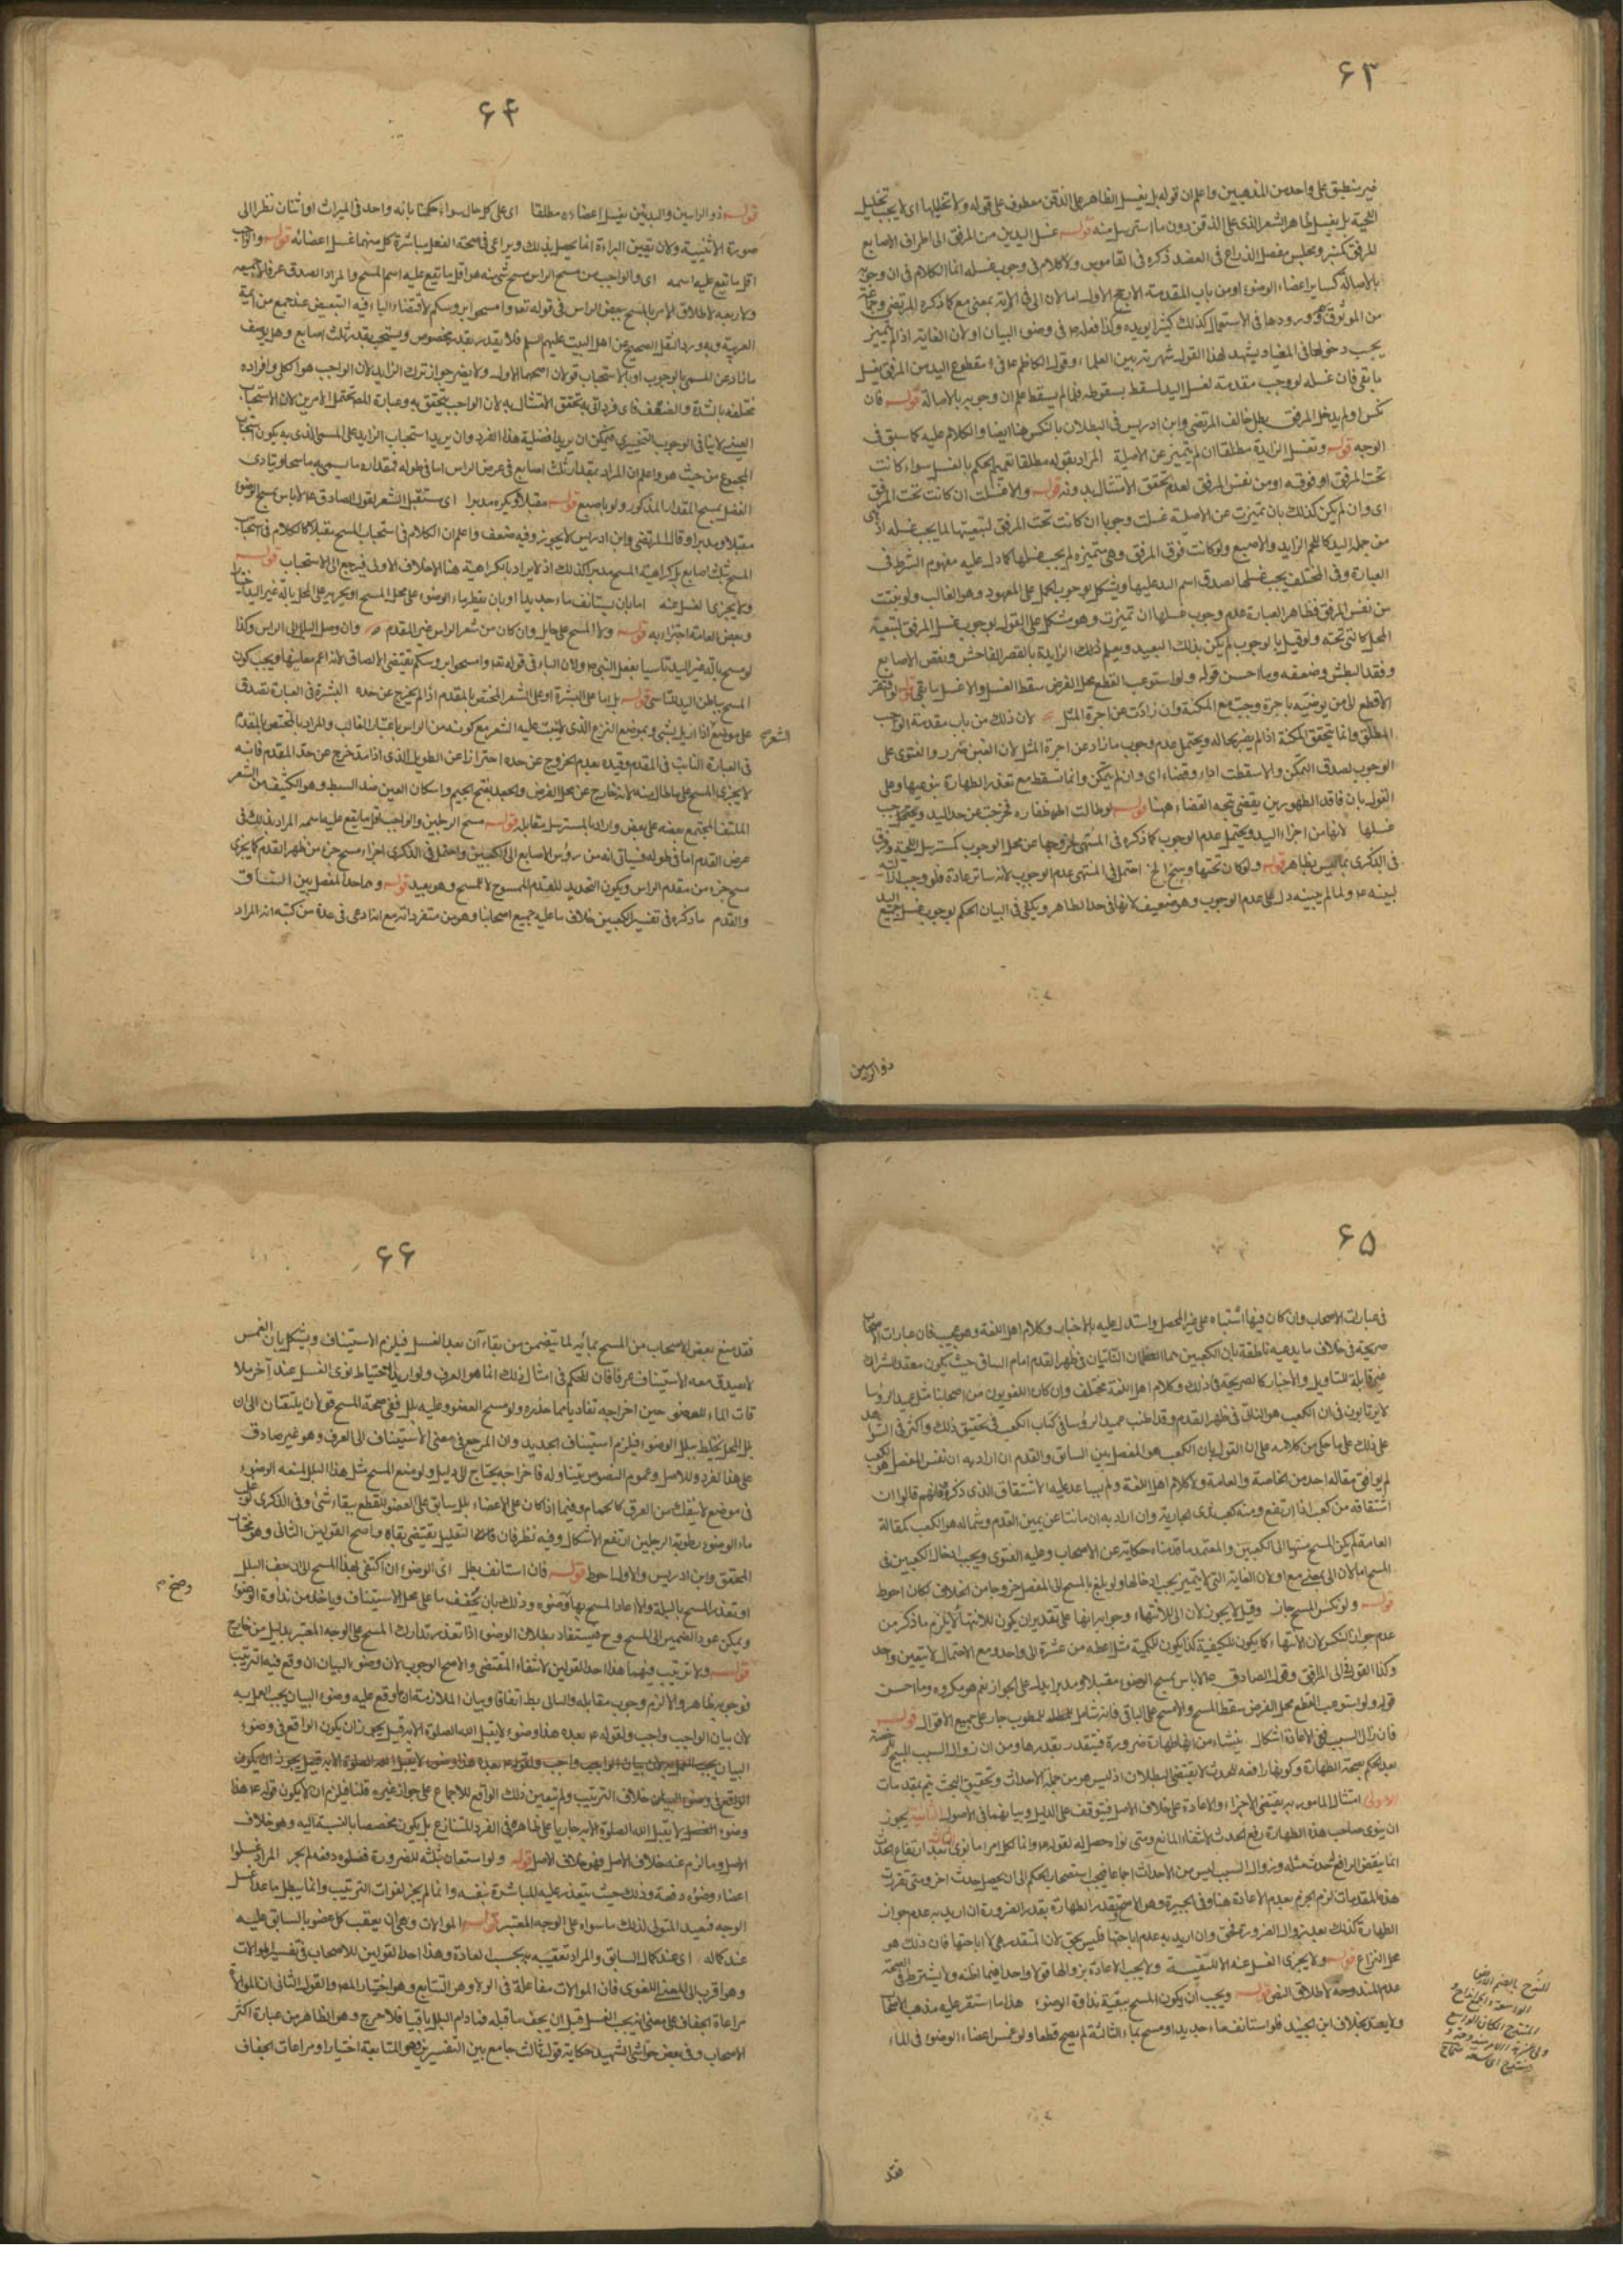 ۶۳
غير منطبق على واحد من المذهبين واعلم ان قوله بل يغسل الظاهر على الذقن معطوف على قوله ولا تخليلها اى لا يجب تخليل
اللحية بل يغسل ظاهر الشعر الذى على الذقن دون ما استرسل منه قوله غسل اليدين من المرفق الى اطراف الاصابع
المرفق كمنبر ومجلس مفصل الذراع فى العضد ذكره فى القاموس ولا كلام فى وجوب غسله انما الكلام فى ان وجوبه
بالاصالة كساير اعضاء الوضوء او من باب المقدمة الاصح الاول اما لان الى فى الآية بمعنى مع كما ذكره المرتضى وجماعة
من الموثوق بهم وورودها فى الاستعمال كذلك كثيرا يؤيده وكذا فعله ع فى وضوء البيان او لان الغاية اذا لم تتميز
يجب دخولها فى المغيا ويشهد لهذا القول شهرته بين العلماء وقول الكاظم ع فى مقطوع اليد من المرفق يغسل
ما بقى فان غسله لو وجب مقدمة لغسل اليد لسقط بسقوطه فلما لم يسقط علم ان وجوبه بالاصالة قوله فان
نكس او لم يدخل المرفق بطل خالف المرتضى وابن ادريس فى البطلان بالنكس هنا ايضا والكلام عليه كما سبق فى
الوجه قوله وتغسل الزايدة مطلقا ان لم يتميز عن الاصلية المراد بقوله مطلقا تعميم الحكم بالغسل سواء كانت
تحت المرفق او فوقه او من نفس المرفق لعدم تحقق الامتثال بدونه قوله والا غسلت ان كانت تحت المرفق
اى وان لم يكن كذلك بان تميزت عن الاصلية غسلت وجوبا ان كانت تحت المرفق لتبعيتها لما يجب غسله اذ هى
من جملة اليد كاللحم الزايد والاصبع ولو كانت فوق المرفق وهى متميزة لم يجب غسلها كما دل عليه مفهوم الشرط فى
العبارة وفى المختلف يجب غسلها لصدق اسم اليد عليها ويشكل بوجوب الحمل على المعهود وهو الغالب ولو نبتت
من نفس المرفق فظاهر العبارة عدم وجوب غسلها ان تميزت وهو مشكل على القول بوجوب غسل المرفق لتبعية
المحل كالتى تحته ولو قيل بالوجوب لم يكن بذلك البعيد ويعلم ذلك الزايدة بالقصر الفاحش ونقص الاصابع
وفقد البطش وضعفه وما احسن قوله ولو استوعب القطع محل الفرض سقط الغسل والا غسل ما بقى قوله لو افتقر
الاقطع الى من يوضيه باجرة وجبت مع المكنة وان زادت عن اجرة المثل لان ذلك من باب مقدمة الواجب
المطلق وانما تتحقق المكنة اذا لم يضر بحاله ويحتمل عدم وجوب ما زاد عن اجرة المثل لان الغبن ضرر والفتوى على
الوجوب لصدق التمكن والا سقطت اداء وقضاء اى وان لم يتمكن وانما تسقط مع تعذر الطهارة بنوعيها وعلى
القول بان فاقد الطهورين يقضى يتجه القضاء هنا قوله لو طالت اظفاره فخرجت عن حد اليد ويحتمل وجوب
غسلها لانها من اجزاء اليد ويحتمل عدم الوجوب كما ذكره فى المنتهى لخروجها عن محل الوجوب كمسترسل اللحية وفرق
فى الذكرى بما ليس بظاهر قوله ولو كان تحتها وسخ الخ احتمل فى المنتهى عدم الوجوب لانه ساتر عادة فلو وجب ازالته
لبينه ع ولما لم يبينه دل على عدم الوجوب وهو ضعيف لانها فى حد الظاهر ويكفى فى البيان الحكم بوجوب غسل جميع اليد
ذو الراسين
۶۴
قوله ذو الراسين والبدنين يغسل اعضاءه مطلقا اى على كل حال سواء حكمنا بانه واحد فى الميراث او اثنان نظرا الى
صورة الاثنينية ولان تيقن البراءة انما يحصل بذلك ويراعى فى صحة الفعل مباشرة كل منهما غسل اعضائه قوله والواجب
اقل ما يقع عليه اسمه اى والواجب من مسح الراس مسح شىء منه هو اقل ما يقع عليه اسم المسح والمراد الصدق عرفا لا جميعه
ولا ربعه لاطلاق الامر بالمسح ببعض الراس فى قوله تعالى وامسحوا برؤسكم لاقتضاء الباء فيه التبعيض عند جمع من ائمة
العربية وبه ورد النقل الصحيح عن اهل البيت عليهم السلم فلا يقدر بقدر مخصوص ويستحب بقدر ثلث اصابع وهل يوصف
ما زاد عن المسمى بالوجوب او بالاستحباب قولان اصحهما الاول ولا يضر جواز ترك الزايد لان الواجب هو الكلى وافراده
مختلفة بالشدة والضعف فاى فرد اتى به تحقق الامتثال به لان الواجب يتحقق به وعبارة المص تحتمل الامرين لان الاستحباب
العينى لا ينافى الوجوب التخييرى فيمكن ان يريد افضلية هذا الفرد وان يريد استحباب الزايد على المسمى الذى به يكون استحباب
المجموع من حيث هو واعلم ان المراد بمقدار ثلث اصابع فى عرض الراس اما فى طوله فمقداره ما يسمى به ماسحا ويتادى
الفضل بمسح المقدار المذكور ولو باصبع قوله مقبلا ويكره مدبرا اى مستقبل الشعر لقول الصادق ع لا باس بمسح الوضوء
مقبلا ومدبرا وقال المرتضى وابن ادريس لا يجوز وفيه ضعف واعلم ان الكلام فى استحباب المسح مقبلا كالكلام فى استحباب
المسح بثلث اصابع بل كراهية المسح مدبرا كذلك اذ لا يراد بالكراهية هنا الا خلاف الاولى فيرجع الى الاستحباب قوله
ولا يجزى الغسل عنه اما بان يستانف ماء جديدا او بان يقطر ماء الوضوء على محل المسح او يجريه على المحل بآلة غير اليد
وبعض العامة اجتزأ به قوله ولا المسح على حايل وان كان من شعر الراس غير المقدم وان وصل البلل الى الراس وكذا
لو مسح بآلة غير اليد تاسيا بفعل النبى ص ولان الباء فى قوله تعالى وامسحوا برؤسكم تقتضى الالصاق لانه اعم معانيها ويجب كون
المسح بباطن اليد للتاسى قوله بل اما على البشرة او على الشعر المختص بالمقدم اذا لم يخرج عن حده البشرة فى العبارة تصدق
على موضع اذا ازيل بشىء وبموضع النزع الذى لا ينبت عليه الشعر مع كونه من الراس باعتبار الغالب والمراد بالمختص بالمقدم
الشعر
فى العبارة النابت فى المقدم وقيده بعدم الخروج عن حده احترازا عن الطويل الذى اذا مد خرج عن حد المقدم فانه
لا يجزى المسح على ما طال منه لانه خارج عن محل الفرض والجعد بفتح الجيم واسكان العين ضد السبط وهو الكثيف من الشعر
الملتف المجتمع بعضه على بعض واراد بالمسترسل مقابله قوله مسح الرجلين والواجب اقل ما يقع عليه اسمه المراد بذلك فى
عرض القدم اما فى طوله فسياتى انه من رؤس الاصابع الى الكعبين واحتمل فى الذكرى اجزاء مسح جزء من ظهر القدم كما يجزى
مسح جزء من مقدم الراس ويكون التحديد للقدم الممسوح لا للمسح وهو بعيد قوله وهما حد المفصل بين الساق
والقدم ما ذكره فى تفسير الكعبين خلاف ما عليه جميع اصحابنا وهو من متفرداته مع انه ادعى فى عدة من كتبه انه المراد
۶۵
فى عبارات الاصحاب وان كان فيها اشتباه على غير المحصل واستدل عليه بالاخبار وكلام اهل اللغة وهو عجيب فان عبارات الاصحاب
صريحة فى خلاف ما يدعيه ناطقة بان الكعبين هما العظمان الناتيان فى ظهر القدم امام الساق حيث يكون معقد الشراك
غير قابلة للتاويل والاخبار كالصريحة فى ذلك وكلام اهل اللغة مختلف وان كان اللغويون من اصحابنا مثل عميد الرؤسا
لا يرتابون فى ان الكعب هو الناتى فى ظهر القدم وقد اطنب عميد الرؤسا فى كتاب الكعب فى تحقيق ذلك واكثر فى الشواهد
على ذلك على ما حكى من كلامه على ان القول بان الكعب هو المفصل بين الساق والقدم ان اراد به ان نفس المفصل هو الكعب
لم يوافق مقالة احد من الخاصة والعامة ولا كلام اهل اللغة ولم يساعد عليه الاشتقاق الذى ذكروه فانهم قالوا ان
اشتقاقه من كعب اذا ارتفع ومنه كعب ثدى الجارية وان اراد به ان ما نتا عن يمين القدم وشماله هو الكعب كمقالة
العامة فلم يكن المسح منتهيا الى الكعبين والمعتمد ما قدمناه حكايته عن الاصحاب وعليه الفتوى ويجب ادخال الكعبين فى
المسح اما لان الى بمعنى مع او لان الغاية التى لا تتميز يجب ادخالها ولو بلغ بالمسح الى المفصل خروجا من الخلاف لكان احوط
قوله ولو نكس المسح جاز وقيل لا يجوز لان الى للانتهاء وجوابه انها على تقدير ان يكون للانتهاء لا يلزم ما ذكر من
عدم جواز النكس لان الانتهاء كما يكون للكيفية كذا يكون للكمية مثل اعطه من عشرة الى واحد ومع الاحتمال لا يتعين واحد
وكذا القول فى الى المرافق وقول الصادق ع لا باس بمسح الوضوء مقبلا ومدبرا يدل على الجواز نعم هو مكروه وما احسن
قوله ولو استوعب القطع محل الفرض سقط المسح والا مسح على الباقى فانه شامل للمطلوب جار على جميع الاقوال قوله
فان زال السبب ففى الاعادة اشكال ينشاء من انها طهارة ضرورة فيتقدر بقدرها ومن ان زوال السبب المبيح للرخصة
بعد الحكم بصحة الطهارة وكونها رافعة للحدث لا يقتضى البطلان اذ ليس هو من جملة الاحداث وتحقيق البحث يتم بمقدمات
الاولى امتثال المامور به يقتضى الاجزاء والاعادة على خلاف الاصل فيتوقف على الدليل وبيانهما فى الاصول الثانية يجوز
ان ينوى صاحب هذه الطهارة رفع الحدث لانتفاء المانع ومتى نواه حصل له لقوله ع وانما لكل امرء ما نوى الثالثة بعد ارتفاع الحدث
انما ينقض الرافع لحدث مثله وزوال السبب ليس من الاحداث اجماعا فيجب استصحاب الحكم الى ان يحصل حدث اخر ومتى تقررت
هذه المقدمات لزم الجزم بعدم الاعادة هنا وفى الجبيرة وهو الاصح وتقدر الطهارة بقدر الضرورة ان اريد به عدم جواز
الطهارة كذلك بعد زوال الضرورة فحق وان اريد به عدم اباحتها فليس بحق لان المتقدر هى لا اباحتها فان ذلك هو
محل النزاع قوله ولا يجزى الغسل عنه الا للتقية ولا يجب الاعادة بزوالها قولا واحدا فيما اظنه ولا يشترط فى الصحة
عدم المندوحة لاطلاق النص قوله ويجب ان يكون المسح ببقية نداوة الوضوء هذا ما استقر عليه مذهب الاصحاب
ولا يعتد بخلاف ابن الجنيد فلو استانف ماء جديدا او مسح بماء الثالثة لم يصح قطعا ولو غمس اعضاء الوضوء فى الماء
فقد
۶۶
فقد منع بعض الاصحاب من المسح بمائه لما يتضمن من بقاء آن بعد الغسل فيلزم الاستيناف ويشكل بان الغمس
لا يصدق معه الاستيناف عرفا فان المحكم فى امثال ذلك انما هو العرف ولو اريد الاحتياط نوى الغسل عند آخر ملا
قات الماء للعضو حين اخراجه تفاديا مما حذره ولو مسح العضو وعليه بلل ففى صحة المسح قولان يلتفتان الى ان
بلل المحل يختلط ببلل الوضوء فيلزم استيناف الجديد وان المرجع فى معنى الاستيناف الى العرف وهو غير صادق
على هذا الفرد وللاصل وعموم النصوص يتناوله فاخراجه يحتاج الى دليل ولو منع المسح مثل هذا البلل لمنعه الوضوء
فى موضع لا ينفك من العرق كالحمام وفيما اذا كان على الاعضاء بلل سابق على العضو للقطع ببقاء شىء وفى الذكرى لو غلب
ماء الوضوء رطوبة الرجلين ارتفع الاشكال وفيه نظر فان التعليل يقتضى بقاءه واصح القولين الثانى وهو مختار
المحقق وابن ادريس والاول احوط قوله فان استانف بطل اى الوضوء ان اكتفى بهذا المسح الى ان جف البلل
او تعذر المسح بالبلة والا اعاد المسح بها وضوءه وذلك بان يجفف ما على محل الاستيناف وياخذ من نداوة الوضوء
ويمكن عود الضمير الى المسح وح فيستفاد بطلان الوضوء اذا تعذر تدارك المسح على الوجه المعتبر بدليل من خارج
قوله ولا ترتيب فيهما هذا احد القولين لانتفاء المقتضى والاصح الوجوب لان وضوء البيان ان وقع فيه الترتيب
فوجوبه ظاهر والا لزم وجوب مقابله والتالى بط اتفاقا وبيان الملازمة ان ما وقع عليه وضوء البيان يجب العمل به
لان بيان الواجب واجب ولقوله ع بعده هذا وضوء لا يقبل الله الصلوة الا به قيل يجوز ان يكون الواقع فى وضوء
البيان يجب العمل به لان بيان الواجب واجب ولقوله ع بعده هذا وضوء لا يقبل الله الصلوة الا به قيل يجوز ان يكون
الواقع فى وضوء البيان خلاف الترتيب ولم يتعين ذلك الواقع للاجماع على جواز غيره قلنا فيلزم ان لا يكون قوله ع هذا
وضوء لا يقبل الله الصلوة الا به جاريا على ظاهره فى الفرد المتنازع بل يكون مخصصا بالنسبة اليه وهو خلاف
الاصل وما لزم عنه خلاف الاصل فهو خلاف الاصل قوله ولو استعان بثلثة للضرورة فغسلوه دفعة لم يجز المراد غسلوا
اعضاء وضوءه دفعة وذلك حيث يتعذر عليه المباشرة بنفسه وانما لم يجز لفوات الترتيب وانما يبطل ما عدا غسل
الوجه فيعيد المتولى لذلك ما سواه على الوجه المعتبر قوله الموالات وهى ان يعقب كل عضو بالسابق عليه
عند كماله اى عند كمال السابق والمراد تعقيبه به بحسب العادة وهذا احد القولين للاصحاب فى تفسير الموالات
وهو اقرب الى المعنى اللغوى فان الموالات مفاعلة من الولاء وهو التتابع وهو اختيار المص والقول الثانى ان الموالاة
مراعاة الجفاف على معنى انه يجب الغسل قبل ان يجف ما قبله فما دام البلل باقيا فلا حرج وهو الظاهر من عبارة اكثر
الاصحاب وفى بعض حواشى الشهيد حكاية قول ثالث جامع بين التفسيرين وهو المتابعة اختيارا ومراعات الجفاف